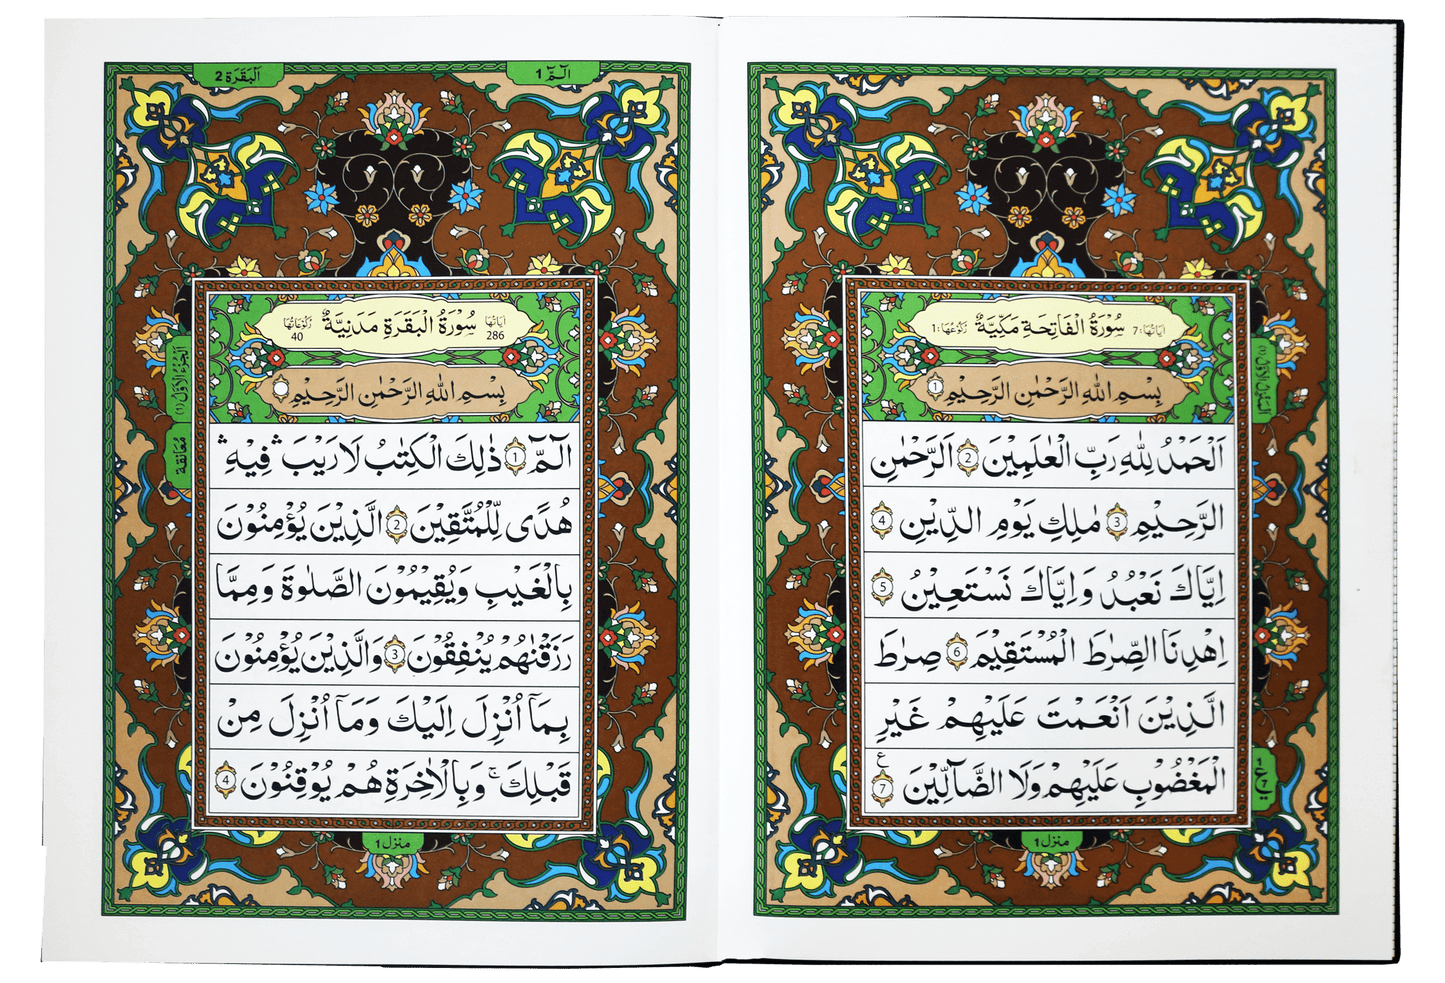 سُوْرَةُ الْفَاتِحَةِ مَكِّيَّةٌ
اٰيَاتُهَا: 7
رُكُوْعُهَا: 1
بِسْمِ اللّٰهِ الرَّحْمٰنِ الرَّحِيْمِ 1
اَلْحَمْدُ لِلّٰهِ رَبِّ الْعٰلَمِيْنَ 2 الرَّحْمٰنِ
الرَّحِيْمِ 3 مٰلِكِ يَوْمِ الدِّيْنِ 4
اِيَّاكَ نَعْبُدُ وَاِيَّاكَ نَسْتَعِيْنُ 5
اِهْدِنَا الصِّرَاطَ الْمُسْتَقِيْمَ 6 صِرَاطَ
الَّذِيْنَ اَنْعَمْتَ عَلَيْهِمْ غَيْرِ
الْمَغْضُوْبِ عَلَيْهِمْ وَلَا الضَّآلِّيْنَ 7
ع
منزل 1
الٓمّٓ 1
الْبَقَرَة 2
سُوْرَةُ الْبَقَرَةِ مَدَنِيَّةٌ
اٰيَاتُهَا 286
رُكُوْعَاتُهَا 40
بِسْمِ اللّٰهِ الرَّحْمٰنِ الرَّحِيْمِ
الٓمّٓ 1 ذٰلِكَ الْكِتٰبُ لَا رَيْبَ ۛ فِيْهِ ۛ
هُدًى لِّلْمُتَّقِيْنَ 2 الَّذِيْنَ يُؤْمِنُوْنَ
بِالْغَيْبِ وَيُقِيْمُوْنَ الصَّلٰوةَ وَمِمَّا
رَزَقْنٰهُمْ يُنْفِقُوْنَ 3 وَالَّذِيْنَ يُؤْمِنُوْنَ
بِمَآ اُنْزِلَ اِلَيْكَ وَمَآ اُنْزِلَ مِنْ
قَبْلِكَ ۚ وَبِالْاٰخِرَةِ هُمْ يُوْقِنُوْنَ 4
الجزء الاول (1)
معانقة
منزل 1